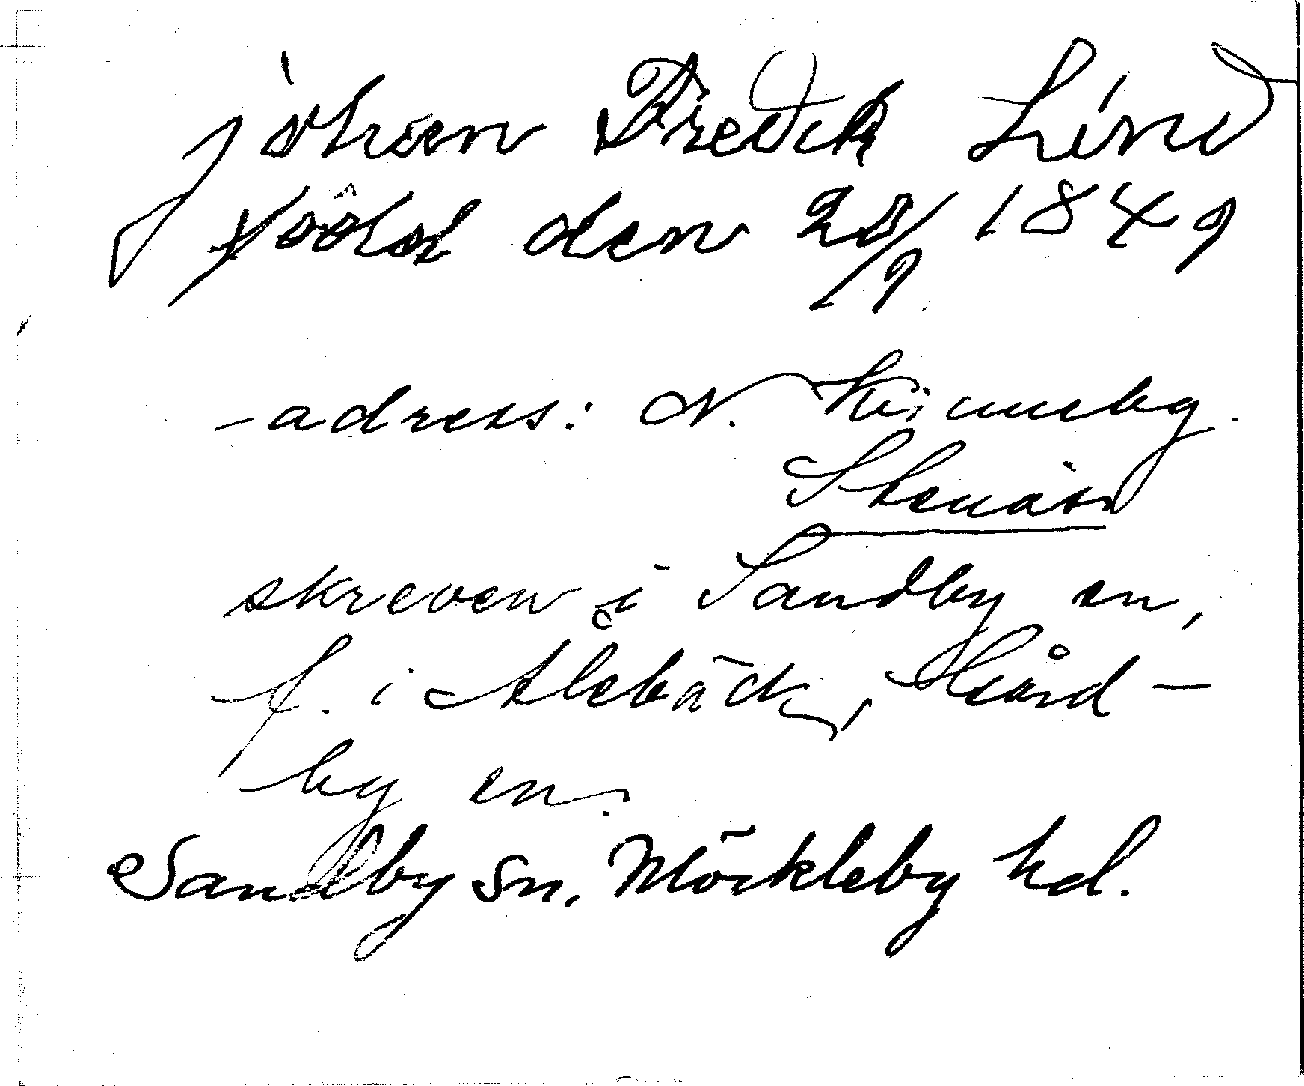 johan Fredik Lind
född den 28/9 1849
adress: N. Kvinneby.
Stenåsa
skreven i Sandby sn,
f. i Alebäck, Gård-
by sn.
Sandby sn. Möckleby hd.